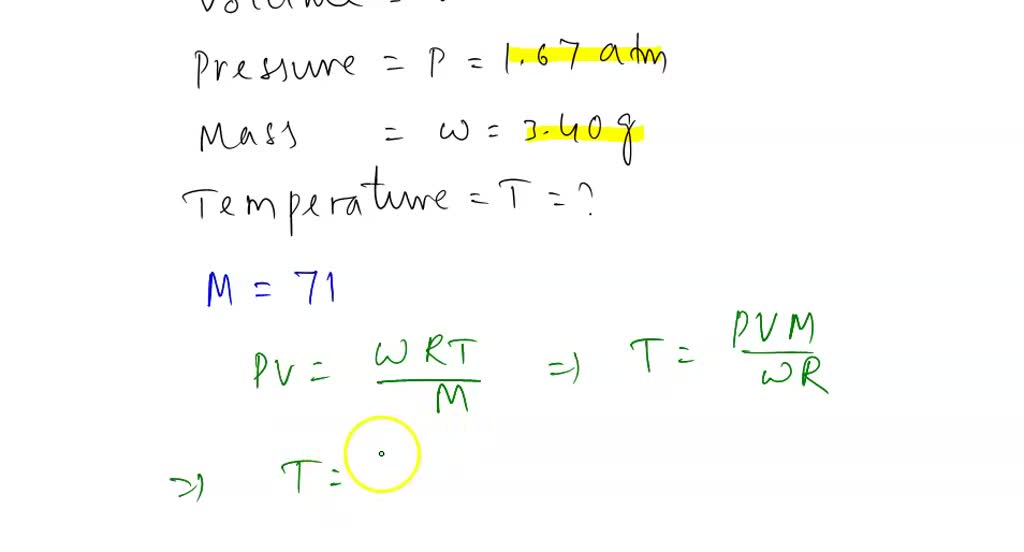 Pressure = P = 1.67 atm
Mass = w = 3.40g
Temperature = T = ?
M = 71
PV = wRT/M => T = PVM/wR
=> T =